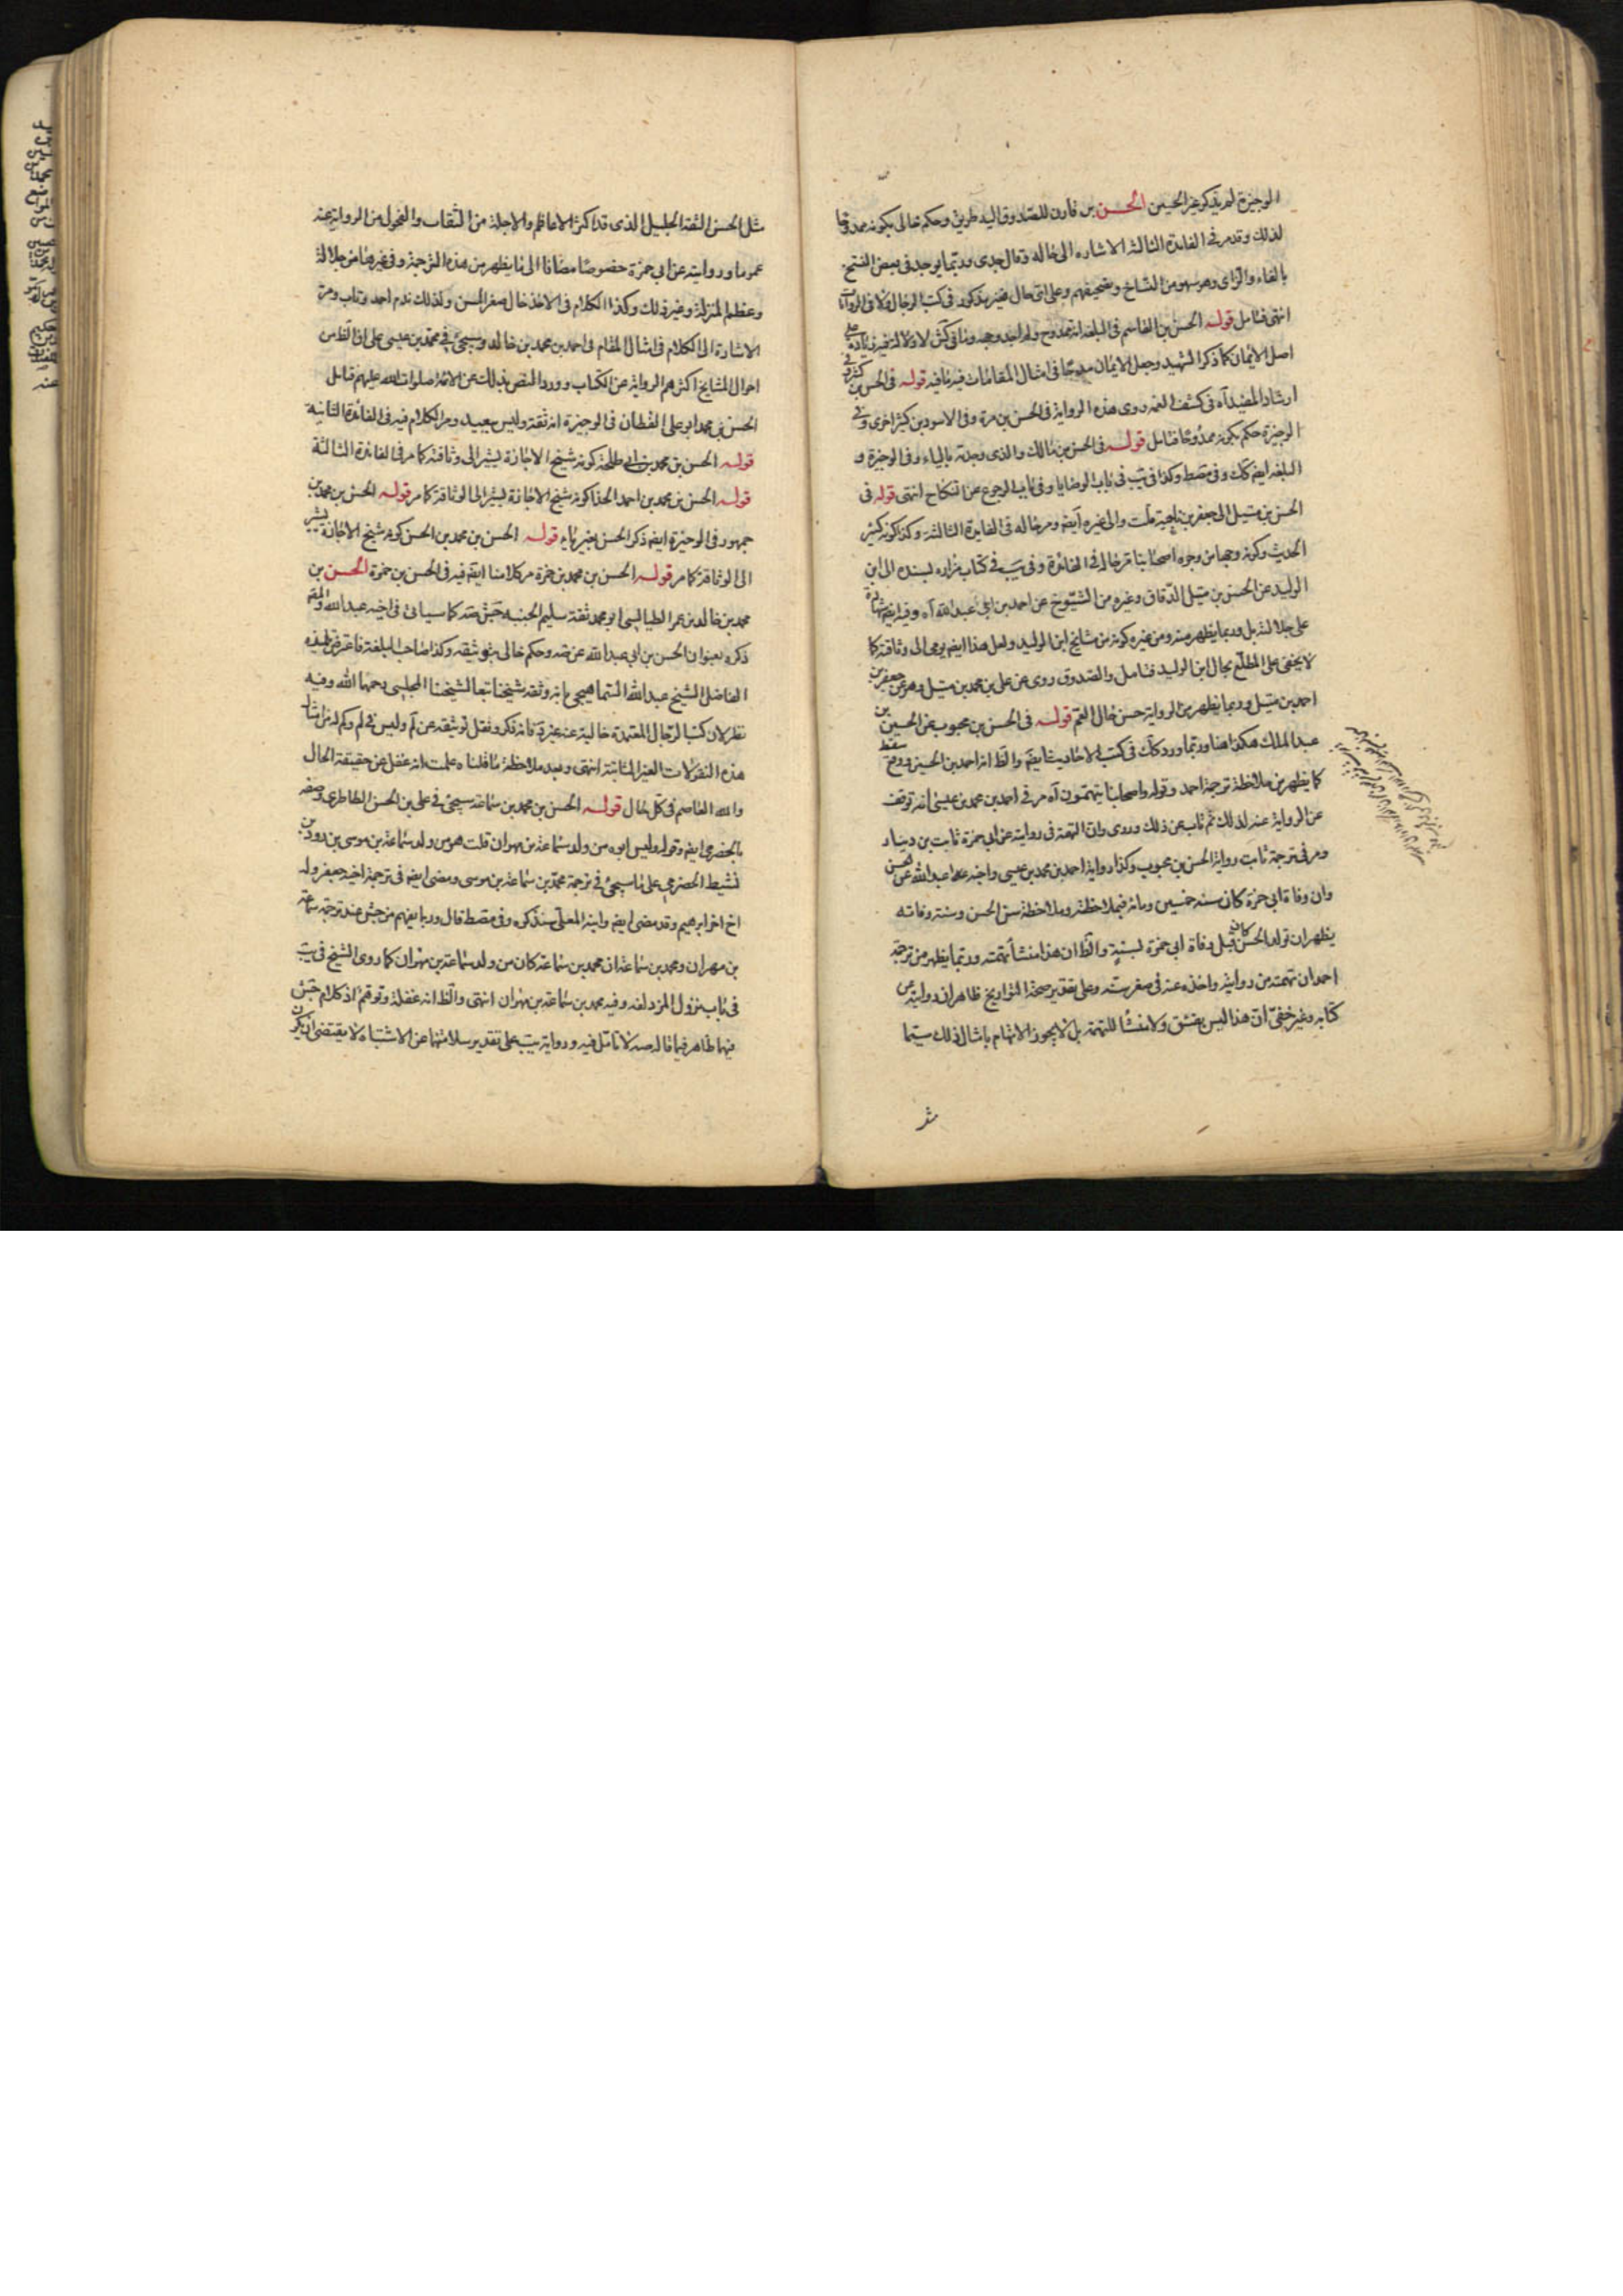 الوجيزة لم يذكر غير الحسين الحسن بن قارن للصدوق اليه طريق وحكم خالى بكونه ممدوحا
لذلك وقد مر فى الفائدة الثالثة الاشارة الى حاله وقال جدى ره ربما يوجد فى بعض النسخ
بالفاء والزاى وهو سهو من النساخ وتصحيفهم وعلى اى حال غير مذكور فى كتب الرجال
انتهى فتامل قوله الحسن بن القاسم فى البلغة انه ممدوح ولم اجد وجهه وما فى كش لا دلالة فيه زيادة على
اصل الايمان كما ذكر الشهيد وجعل الايمان مدحا فى امثال المقامات فيه ما فيه قوله فى الحسن بن كثير فى
ارشاد المفيد آه فى كشف الغمة روى هذه الرواية فى الحسن بن مرة وفى الاسود بن كثير اخرى وفى
الوجيزة حكم بكونه ممدوحا فتامل قوله فى الحسن بن مالك والذى وجدته بالياء وفى الوجيزة و
البلغة ايضم كك وفى مصط وكذا فى يب فى باب الوصايا وفى باب الرجوع عن النكاح انتهى قوله فى
الحسن بن متيل الى جعفر بن ناجية قلت والى غيره ايضم ومر حاله فى الفائدة الثالثة وكذا كونه كثير
الحديث وكونه وجها من وجوه اصحابنا مر حاله فى الفائدة وفى يب فى كتاب مزاره بسنده الى ابن
الوليد عن الحسن بن متيل الدقاق وغيره من الشيوخ عن احمد بن ابى عبد الله آه وفيه ايضم شهادة
على جلالته بل وربما يظهر منه ومن غيره كونه من مشايخ ابن الوليد ولعل هذا ايضم يومى الى وثاقته كما
لا يخفى على المطلع بحال ابن الوليد فتامل والصدوق روى عن على بن محمد بن متيل وهو عن جعفر بن
احمد بن متيل وربما يظهر من الرواية حسن حال العم قوله فى الحسن بن محبوب عن الحسين بن
عبد الملك هكذا هنا وربما ورد كك فى كتب الاحاديث ايضم والظ انه احمد بن الحسين
كما يظهر من ملاحظة ترجمة احمد وقوله واصحابنا يتهمون آه مر فى احمد بن محمد بن عيسى انه توقف
عن الرواية عنه لذلك ثم تاب عن ذلك وروى وان التهمة فى روايته عن ابى حمزة ثابت بن دينار
ومر فى ترجمة ثابت رواية الحسن بن محبوب وكذا رواية احمد بن محمد بن عيسى واخيه عبد الله عن الحسن
وان وفاة ابى حمزة كان سنة خمسين ومائة فبملاحظته وملاحظة سن الحسن وسنة وفاته
يظهر ان تولد الحسن كان قبل وفاة ابى حمزة بسنة والظ ان هذا منشأ تهمته وربما يظهر من ترجمة
احمد ان تهمته من روايته واخذه عنه فى صغر سنه وعلى تقدير صحة التواريخ ظاهر ان روايته من
كتابه وغير خفى ان هذا ليس بفسق ولا منشأ للتهمة بل لا يجوز الاتهام بامثال ذلك سيما
مثل
مثل الحسن الثقة الجليل الذى قد اكثر الاعاظم والاجلة من الثقات والفحول من الرواية عنه
عموما وروايته عن ابى حمزة خصوصا مضافا الى ما يظهر من هذه الترجمة وفى غيرها من جلالته
وعظم المنزلة وغير ذلك وكذا الكلام فى الاخذ حال صغر السن ولذلك ندم احمد وتاب ومر
الاشارة الى الكلام فى امثال المقام فى احمد بن محمد بن خالد وسيجئ فى محمد بن عيسى على ان الظ من
احوال المشايخ اكثرهم الرواية عن الكتاب وورد النص بذلك عن الائمة صلوات الله عليهم فتامل
الحسن بن محمد ابو على القطان فى الوجيزة انه ثقة وليس ببعيد ومر الكلام فيه فى الفائدة الثانية
قوله الحسن بن محمد بن ابى طلحة كونه شيخ الاجازة يشير الى وثاقته كما مر فى الفائدة الثالثة
قوله الحسن بن محمد بن احمد الحذا كونه شيخ الاجازة يشير الى الوثاقة كما مر قوله الحسن بن محمد بن
جمهور فى الوجيزة ايضم ذكر الحسن بغير ياء قوله الحسن بن محمد بن الحسن كونه شيخ الاجازة يشير
الى الوثاقة كما مر قوله الحسن بن محمد بن حمزة مر كلامنا ايضم فيه فى الحسن بن حمزة الحسن بن
محمد بن خالد بن عمر الطيالسى ابو محمد ثقة سليم الجنبة جش صه كما سيأتى فى اخيه عبد الله والمصم
ذكره بعنوان الحسن بن ابى عبد الله عن صه وحكم خالى بتوثيقه وكذا صاحب البلغة فاعترض تلميذه
الفاضل الشيخ عبد الله السماهيجى بانه وثقه شيخنا تبعا لشيخنا المجلسى رحمهما الله وفيه
نظر لان كتب الرجال المعتمدة خالية عنه غير د فانه ذكر ونقل توثيقه عن لم وليس فى لم وكم له من امثال
هذه النقولات الغير الثابتة انتهى وبعد ملاحظة ما قلناه علمت انه غفل عن حقيقة الحال
والله العاصم فى كل حال قوله الحسن بن محمد بن سماعة سيجئ فى على بن الحسن الطاطرى وصفه
بالحضرمى ايضم وقوله وليس ابوه من ولد سماعة بن مهران قلت هو من ولد سماعة بن موسى بن رويد بن
نشيط الحضرمى على ما سيجئ فى ترجمة محمد بن سماعة بن موسى ومضى ايضم فى ترجمة اخيه جعفر وله
اخ اخر ابرهيم وقد مضى ايضم وابنه المعلى سنذكره وفى مصط قال ربما يفهم من جش عند ترجمة سماعة
بن مهران ومحمد بن سماعة ان محمد بن سماعة كان من ولد سماعة بن مهران كما روى الشيخ فى يب
فى باب نزول المزدلفة وفيه محمد بن سماعة بن مهران انتهى والظ انه غفلة وتوهم اذ كلام جش
فيهما ظاهر فيما قاله صه لا تأمل فيه ورواية يب على تقدير سلامتها عن الاشتباه لا يقتضى ان يكون